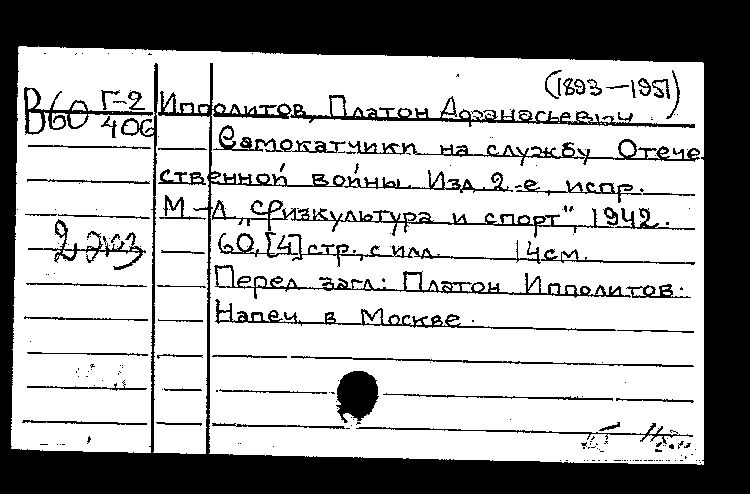 (1893-1951)
В60 Г-2 Ипполитов, Платон Афанасьевич.
406
Самокатчики на службу Отече
ственной войны. Изд. 2-е, испр.
М-Л „Физкультура и спорт", 1942.
2 экз 60, [4] стр., с илл. 14см.
Перед загл.: Платон Ипполитов.
Напеч. в Москве.